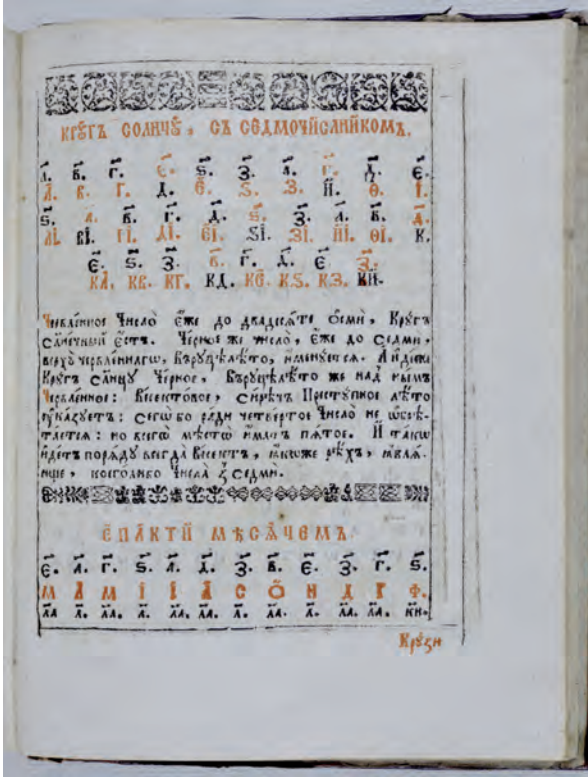 КРꙊГЪ СОЛНЦꙊ, СЪ СЕДМОЧИСЛНИКОМЪ.
А҃. В҃. Г҃. Є҃. Ѕ҃. З҃. А҃. Г҃. Д҃. Є҃.
А҃. В. Г. Д. Є҃. Ѕ. З. И҃. Ѳ. І҃.
Ѕ҃. А҃. В҃. Г҃. Д҃. Ѕ҃. З҃. А҃. В҃. Д҃.
АІ. ВІ. ГІ. ДІ. ЄІ. ЅІ. ЗІ. ИІ. ѲІ. К.
Є҃. Ѕ҃. З҃. В҃. Г҃. Д҃. Є҃ З҃.
КА. КВ. КГ. КД. КЄ. КЅ. КЗ. КИ.
Червле́нное Число̀ є́же до двадеся́те ѻ́сми, Крꙋ́гъ
сл҃нечный є҆́стъ. Че́рное же число̀, є́же до се́дми,
верхꙋ̀ червле́ннагѡ, Върꙋцѣлѣ́то, имену́ется. А идѣже
Крꙋгъ сл҃нцꙋ Че́рное, Върꙋцѣлѣ́то же над ны́мъ
Червле́нное: Висекто́вое, си́рѣчъ Престꙋ́пное лѣ́то
ᲂука́зꙋетъ: сегѡ̀ бо ра́ди четве́ртое Число̀ не ѡбрѣ-
та́ется: но в́сегѡ мѣ́стѡ и́мать пя́тое. И та́кѡ
и́детъ порѧ́дꙋ всегда̀ Висе́ктъ, ꙗ́коже рѣ́хъ, ꙗвлѧ-
юще, коего́либо Числа̀ ѿ се́дми.
ЄПА́КТИ МѢСѦЧЕМЪ.
Є҃. А҃. Г҃. Ѕ҃. А҃. Д҃. З҃. В҃. Є҃. З҃. Г҃. Ѕ҃.
М А М І І А С Ѻ Н Д Г Ф.
Л҃А Л҃. Л҃А. Л҃. Л҃А. Л҃А. Л҃. Л҃А. Л҃. Л҃А. Л҃А. К҃И.
Крꙋзи